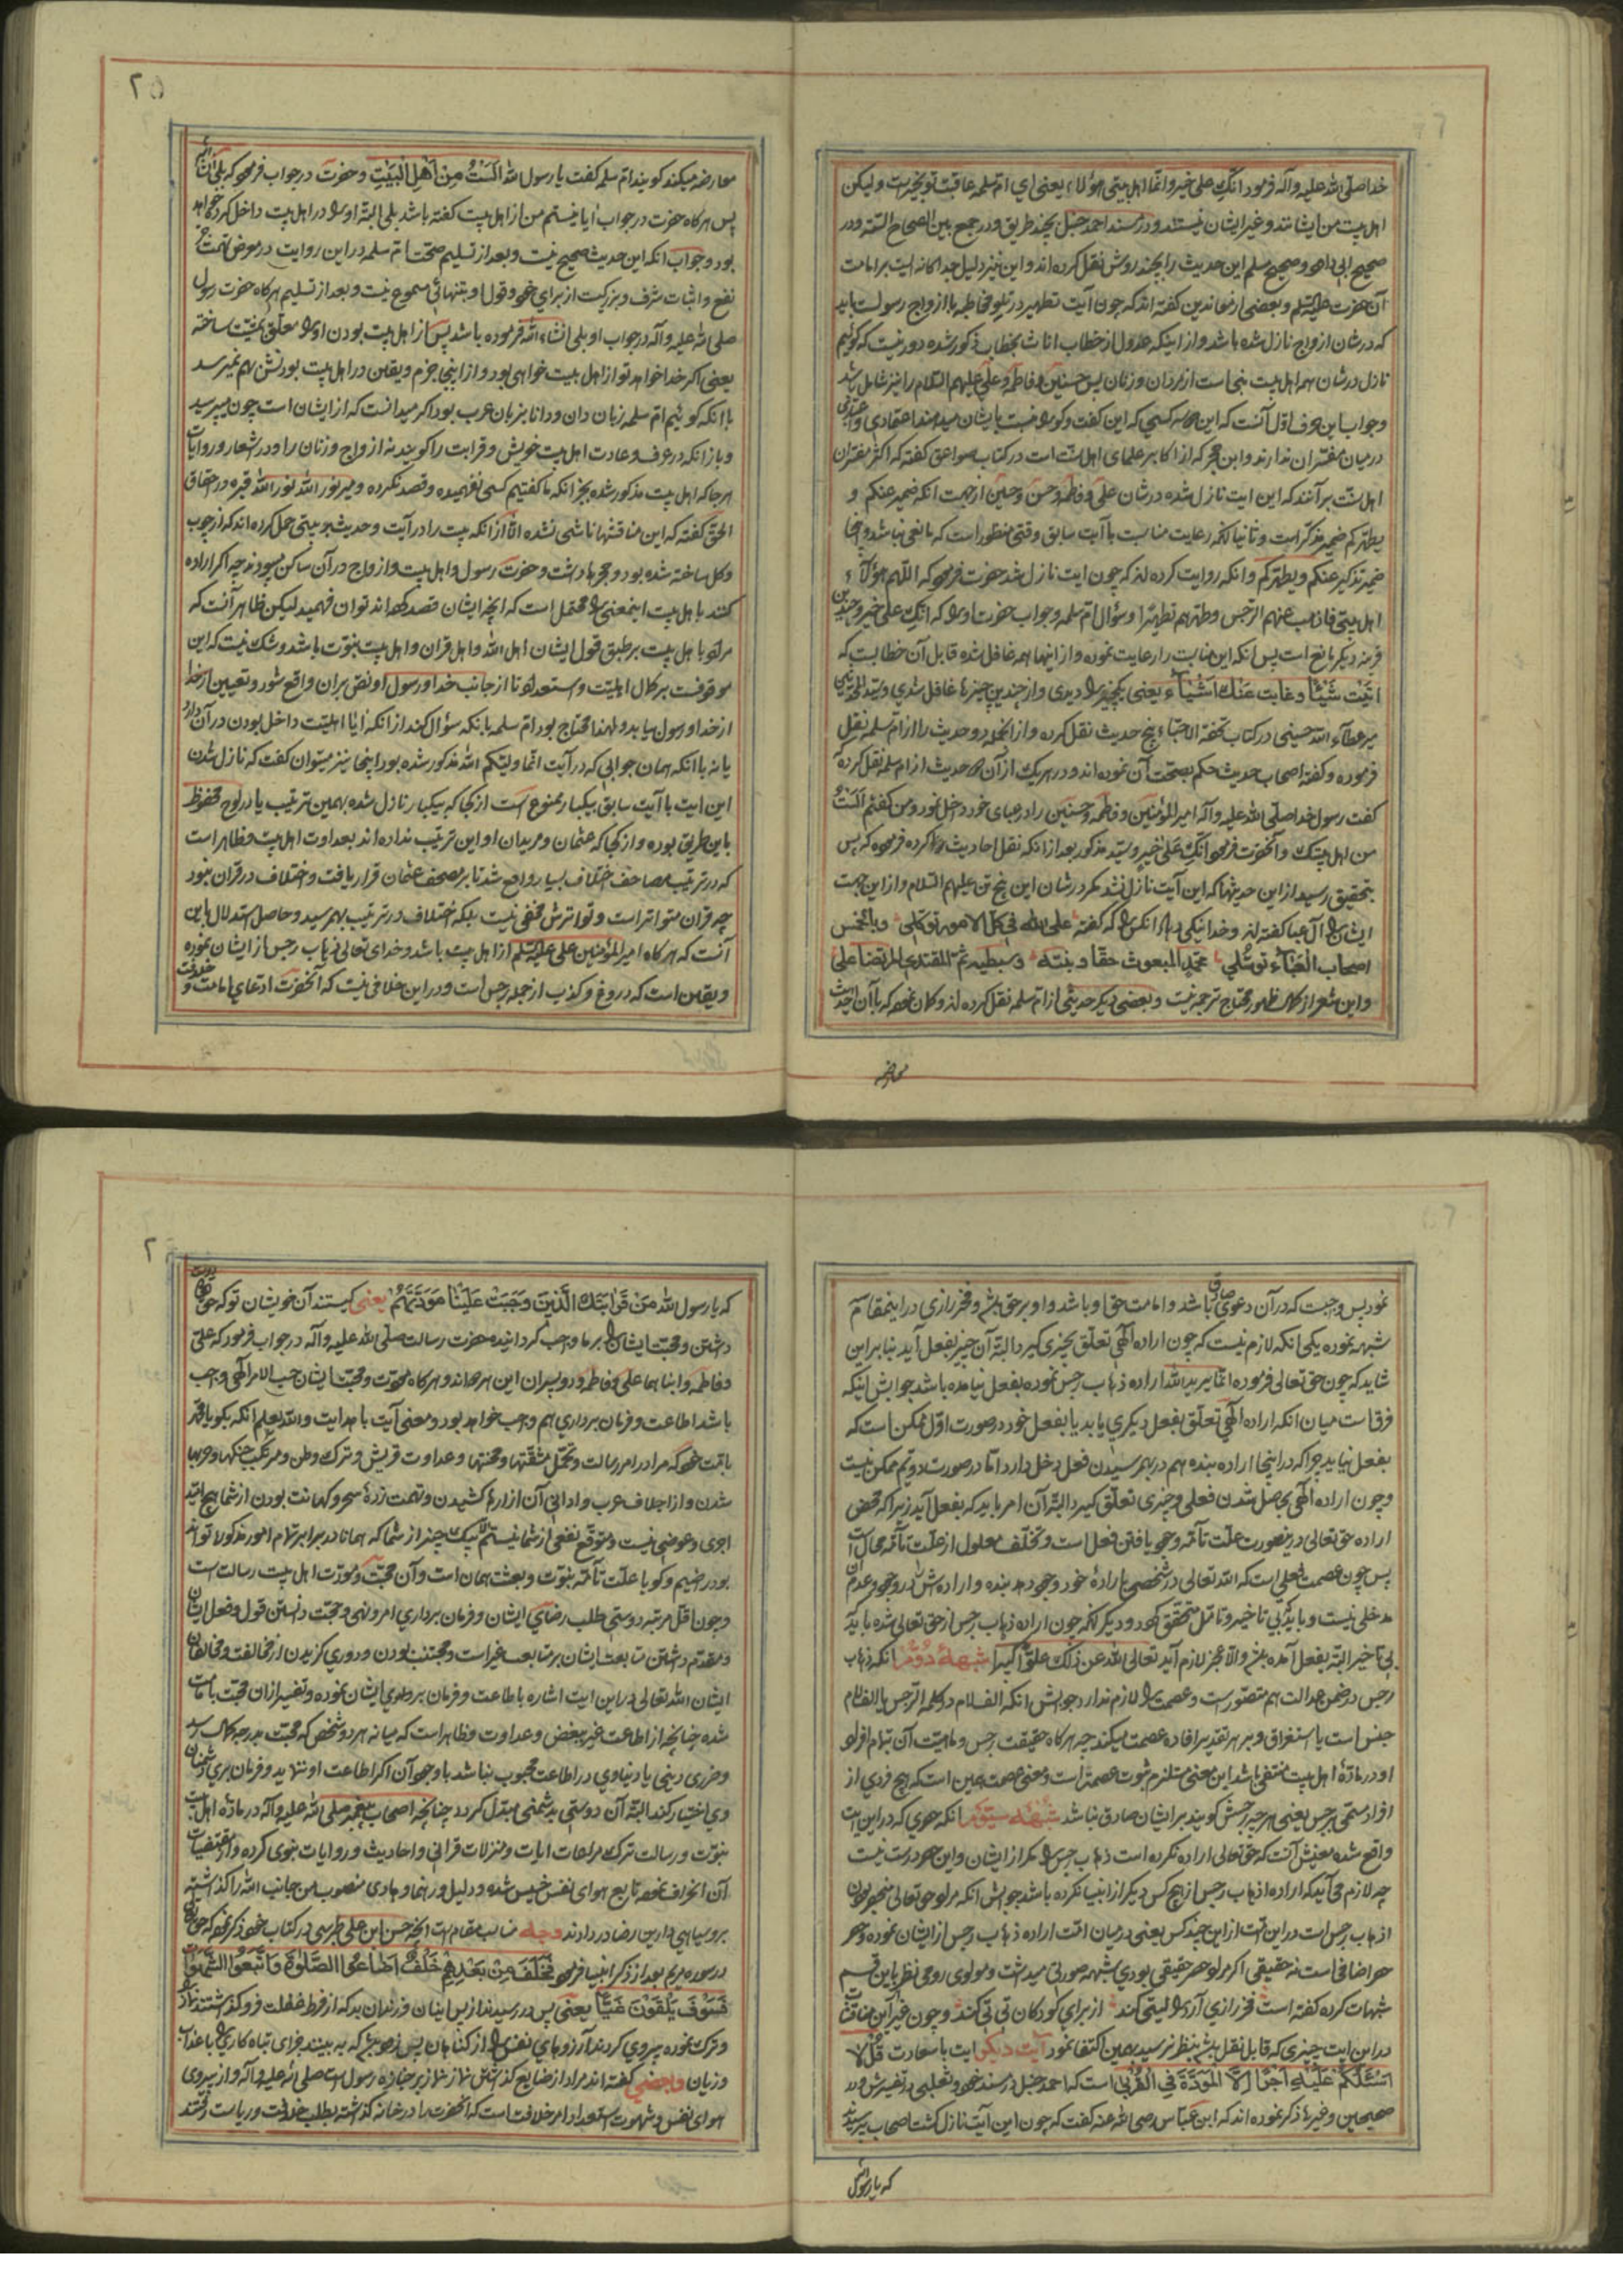 خدا صلی الله علیه وآله فرمود انک علی خیر وانما اهل بیتی هؤلاء یعنی ای ام سلمه عاقبت تو بخیرست ولیکن
اهل بیت من ایشانند وغیر ایشان نیستند ودر مسند احمد حنبل بچند طریق ودر جمع بین الصحاح الستّه ودر
صحیح ابی داود وصحیح مسلم این حدیث را بچند روش نقل کرده اند واین نیز دلیل جداکانه است بر امامت
آن حضرت علیه السلم وبعضی از معاندین کفته اند که چون آیت تطهیر در تلو مخاطبه با ازواج رسولست باید
که در شان ازواج نازل شده باشد واز اینکه عدول از خطاب اناث بخطاب ذکور شده دور نیست که کوئیم
نازل در شان همه اهل بیت نبی است از مردان وزنان پس حسنین وفاطمه وعلی علیهم السلام را نیز شامل باشد
وجواب این حرف اوّل آنست که این کسی که این کفت وکو را نسبت بایشان میدهند اعتمادی واعتباری
در میان مفسران ندارند وابن حجر که از اکابر علمای اهل سنّت است در کتاب صواعق کفته که اکثر مفسران
اهل سنّت بر آنند که این ایت نازل شده در شان علی وفاطمه وحسن وحسین از جهت انکه ضمیر عنکم و
یطهرکم ضمیر مذکّر است وثانیا انکه رعایت مناسبت با آیت سابق وقتی منظور است که مانعی نباشد واینجا
ضمیر تذکیر عنکم ویطهرکم وانکه روایت کرده اند که چون ایت نازل شد حضرت فرمود که اللّهم هؤلآء
اهل بیتی فاذهب عنهم الرّجس وطهّرهم تطهیرا وسؤال ام سلمه وجواب حضرت او را که انّک علی خیر وچندین
قرینه دیکر مانع است پس انکه این مناسبت را رعایت نموده واز اینها همه غافل شده قابل آن خطابست که
اتیت شیئا وغابت عنک اشیاء یعنی یکچیز را دیدی واز چندین چیزها غافل شدی وسید المحدثین
میر عطاء الله حسینی در کتاب تحفة الاحبّاء پنج حدیث نقل کرده واز انجمله دو حدیث را از ام سلمه نقل
فرموده وکفته اصحاب حدیث حکم بصحّت آن نموده اند ودر هر یک از آن دو حدیث از ام سلمه نقل کرده
کفت رسول خدا صلی الله علیه وآله امیر المؤمنین وفاطمه وحسنین را در عبای خود داخل نمود ومن کفتم الست
من اهل بیتک وآنحضرت فرمود انّک علی خیر وسید مذکور بعد از انکه نقل احادیث را کرده فرموده که پس
بتحقیق رسید از این حدیثها که این آیت نازل نشد مکر در شان این پنج تن علیهم السلام واز این جهت
ایشان را آل عبا کفته اند وخدا نیکی دهاد انکس را که کفته علی الله فی کل الامور توکّلی وبالخمس
اصحاب العباء توسّلی محمّد المبعوث حقا وبنته وسبطیه ثمّ المقتدی المرتضا علی
واین شعر از کمال ظهور محتاج ترجمه نیست وبعضی دیکر حدیثی از ام سلمه نقل کرده اند وکمان نموده که باآن احدیث
معارضه
٢۵
معارضه میکند کویند ام سلمه کفت یا رسول الله الست من اهل البیت وحضرت در جواب فرمود که بلی ان شاء الله
پس هرکاه حضرت در جواب آیا نیستم من از اهل بیت کفته باشد بلی البتّه او را در اهل بیت داخل کرده خواهد
بود وجواب انکه این حدیث صحیح نیست وبعد از تسلیم صحّت ام سلمه در این روایت در معرض تهمت
نفع واثبات شرف وبزرکیست از برای خود وقول او بتنهائی مسموع نیست وبعد از تسلیم هرکاه حضرت رسول
صلی الله علیه وآله در جواب او بلی انشاء الله فرموده باشد پس از اهل بیت بودن او را معلّق بمشیّت ساخته
یعنی اکر خدا خواهد تو از اهل بیت خواهی بود واز اینجا جزم ویقین در اهل بیت بودنش بهم نمیرسد
باانکه کوئیم ام سلمه زبان دان ودانا بزبان عرب بود اکر میدانست که از ایشان است چون میپرسید
وباز انکه در عرف وعادت اهل بیت خویش وقرابت را کویند نه ازواج وزنان را ودر اشعار وروایات
هر جا که اهل بیت مذکور شده بجز انکه ما کفتیم کسی نفهمیده وقصد نکرده ومیر نور الله نور الله قبره در احقاق
الحق کفته که این مناقشها ناشی نشده الّا از انکه بیت را در آیت وحدیث بر بیتی حمل کرده اند که از چوب
وکل ساخته شده بود وحجرها داشت وحضرت رسول واهل بیت وازواج در آن ساکن میبودند چه اکر اراده
کنند باهل بیت اینمعنی را محتمل است که انچه ایشان قصد کرده اند توان فهمید لیکن ظاهر آنست که
مراد باهل بیت بر طبق قول ایشان اهل الله واهل قران واهل بیت نبوّت باشد وشک نیست که این
موقوفست بر کمال اهلیّت واستعداد تا از جانب خدا ورسول او نصّ بر ان واقع شود وتعیین از خدا
از خدا ورسول بیابد ولهذا محتاج بود ام سلمه بانکه سؤال کند از انکه آیا اهلیّت داخل بودن در آن دارد
یا نه باانکه همان جوابی که در آیت انّما ولیّکم الله مذکور شده بود اینجا نیز میتوان کفت که نازل شدن
این ایت با آیت سابق بیکبار ممنوع است از کجا که بیکبار نازل شده بهمین ترتیب یا در لوح محفوظ
باین طریق بوده واز کجا که عثمان ومریدان او این ترتیب نداده اند بعداوت اهل بیت وظاهر است
که در ترتیب مصاحف اختلاف بسیار واقع شد تا بر مصحف عثمان قرار یافت واختلاف در قران نبود
چه قران متواتر است وتواترش مخفی نیست بلکه اختلاف در ترتیب بهمرسید وحاصل استدلال باین
آنست که هرکاه امیر المؤمنین علی علیه السلم از اهل بیت باشد وخدای تعالی ذهاب رجس از ایشان نموده
ویقین است که دروغ وکذب از جمله رجس است ودر این خلافی نیست که آنحضرت ادعای امامت وخلافت
نمود پس واجبست که در آن دعوی صادق باشد وامامت حق او باشد واو بر حق باشد وفخر رازی در اینمقام
شبهه نموده یکی انکه لازم نیست که چون اراده الهی تعلّق بچیزی کیرد البتّه آن چیز بفعل آید بنابر این
شاید که چون حق تعالی فرموده انّما یرید الله اراده ذهاب رجس نموده بفعل نیامده باشد جوابش اینکه
فرقست میان انکه اراده الهی تعلّق بفعل دیکری یابد یا بفعل خود در صورت اوّل ممکن است که
بفعل نیاید چرا که در اینجا اراده بنده هم در بهمرسیدن فعل دخل دارد امّا در صورت دویّم ممکن نیست
وچون اراده الهی بحاصل شدن فعلی وچیزی تعلّق کیرد البتّه آن امر باید که بفعل آید زیرا که محض
اراده حق تعالی در ینصورت علّت تامّه وجود یافتن فعل است وتخلّف معلول از علّت تامّه محال است
پس چون عصمت فعلی است که الله تعالی در شخصی باراده خود وجود دهد بنده واراده اش را در وجود وعدم آن
مدخلی نیست وباید که بی تاخیر وتامّل متحقّق کردد ودیکر انکه چون اراده ذهاب رجس از حق تعالی شده باید
بی تاخیر البتّه بفعل آمده باشد والّا عجز لازم آید تعالی الله عن ذلک علوّا کبیرا شبهۀ دوّم انکه ذهاب
رجس در ضمن عدالت هم متصوّر است وعصمت را لازم ندارد جوابش انکه الف لام در کلمه الرّجس یا الف لام
جنس است یا استغراق وبر هر تقدیر افاده عصمت میکند چه هرکاه حقیقت رجس وماهیّت آن بتمام افراد
او در مادّۀ اهل بیت منتفی باشد این معنی مستلزم ثبوت عصمتست ومعنی عصمت همین است که هیچ فردی از
افراد مسمّی برجس یعنی هر چه رجسش کویند بر ایشان صادق نباشد شبهۀ سیّوم انکه حصری که در این ایت
واقع شده معنیش آنست که حق تعالی اراده نکرده است ذهاب رجس را مکر از ایشان واین حصر درست نیست
چه لازم می آید که اراده اذهاب رجس از هیچ کس دیکر از انبیا نکرده باشد جوابش انکه مراد حق تعالی منحصر بودن
اذهاب رجس است در این امّت از این چند کس یعنی در میان امّت اراده ذهاب رجس از ایشان نموده وحصر
حصر اضافی است نه حقیقی اکر مراد حصر حقیقی بودی شبهه صورتی میداشت ومولوی رومی نظر باین قسم
شبهات کرده کفته است فخر رازی آرد را لیتی کند از برای کودکان تی تی کند وچون غیر این مناقشات
در این ایت چیزی که قابل نقل باشد بنظر نرسید بهمین اکتفا نمود آیت دیکر ایت با سعادت قل لا
اسئلکم علیه اجرا الّا المودّة فی القربی است که احمد حنبل در مسند خود وثعلبی در تفسیرش ودر
صحیحین وغیرها ذکر نموده اند که ابن عبّاس رضی الله عنه کفت که چون این آیت نازل کشت اصحاب پرسیدند
که یا رسول
٢
که یا رسول الله من قرابتک الّذین وجبت علینا مودّتهم یعنی کیستند آن خویشان تو که حق تعالی دوست
داشتن ومحبّت ایشان را بر ما واجب کردانیده حضرت رسالت صلّی الله علیه وآله در جواب فرمود که علی
وفاطمه وابناهما علی وفاطمه ودو پسران این هر دو اند وهرکاه مودّت ومحبّت ایشان حسب الامر الهی واجب
باشد اطاعت وفرمان برداری هم واجب خواهد بود ومعنی آیت با هدایت والله یعلم انکه بکو یا محمّد
بامّت خود که مرا در امر رسالت وتحمّل مشقّتها ومحنتها وعداوت قریش وترک وطن ومرتکب جنکها وحربها
شدن واز اجلاف عرب واداني آن آزارها کشیدن وتهمت زدۀ سحر وکهانت بودن از شما هیچ امّید
اجری وعوضی نیست ومتوقّع نفعی از شما نیستم الّا یک چیز از شما که همانا در برابر تمام امور مذکوره تواند
بود راضیم وکویا علّت تامّه نبوّت وبعثت همان است وآن محبّت ومودّت اهل بیت رسالت است
وچون اقلّ مرتبه دوستی طلب رضای ایشان وفرمان برداری امر ونهی وحجّت دانستن قول وفعل ایشان
ومقدّم داشتن متابعت ایشان بر متابعت غیر است ومجتنب بودن ودوری کزیدن از مخالفت ومخالفان
ایشان الله تعالی در این ایت اشاره باطاعت وفرمان برداری ایشان نموده وتفسیر از ان محبّت بامامت
شده چنانچه از اطاعت غیر بغض وعداوت وظاهر است که میانه هر دو شخص که محبّت بدرجه کمال رسد
وضرری دینی یا دنیاوی در اطاعت محبوب نباشد باوجود آن اکر اطاعت او ننماید وفرمان بری دشمنان
وی اختیار کند البتّه آن دوستی بدشمنی مبتدل کردد چنانچه اصحاب پیغمبر صلی الله علیه وآله در مادّۀ اهل بیت
نبوّت ورسالت ترک مراعات ایات ومنزلات قرانی واحادیث وروایات نبوی کرده واز مقتضیات
آن انحراف نموده تابع هوای نفس خسیس شده ودلیل ورهنما وهادی منصوب من جانب الله را کذاشته
بروسیاهی دارین رضا در دادند وجه مناسب مقام است انچه حسن ابن علی طبرسی در کتاب خود ذکر نموده که حق تعالی
در سوره مریم بعد از ذکر انبیا فرموده فخلف من بعدهم خلف اضاعوا الصّلوة واتّبعوا الشّهوات
فسوف یلقون غیّا یعنی پس در رسیدند از پس اینان فرزندان بد که از فرط غفلت فرو کذاشتند نماز را
وترک نموده پیروی کردند آرزوهای نفس را از کناهان پس زود باشد که به بینند جزای تباه کاری را با عذاب
وزیان وبعضی کفته اند مراد از ضایع کذاشتن نماز نماز بر جنازه رسول است صلی الله علیه وآله واز پیروی
هوای نفس وشهوت استعداد امر خلافت است که آنحضرت را در خانه کذاشته بطلب خلافت وریاست رفتند